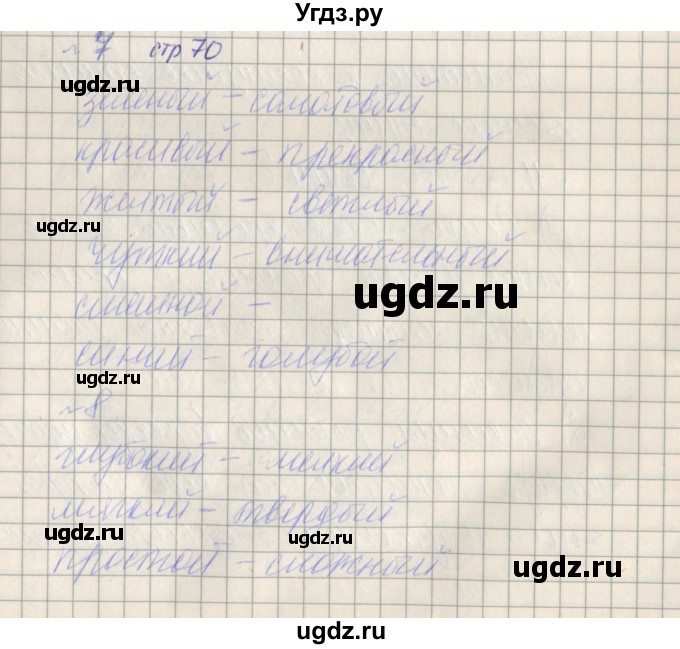 Угдз.ру
№7 стр 70
зеленый – салатовый
ugdz.ru
красивый – прекрасный
ugdz.ru
желтый – светлый
ugdz.ru
чуткий – внимательный
ugdz.ru
стальной –
синий – голубой
ugdz.ru
№8
глубокий – мелкий
мягкий – твердый
ugdz.ru ugdz.ru
простой – сложный
ugdz.ru
ugdz.ru